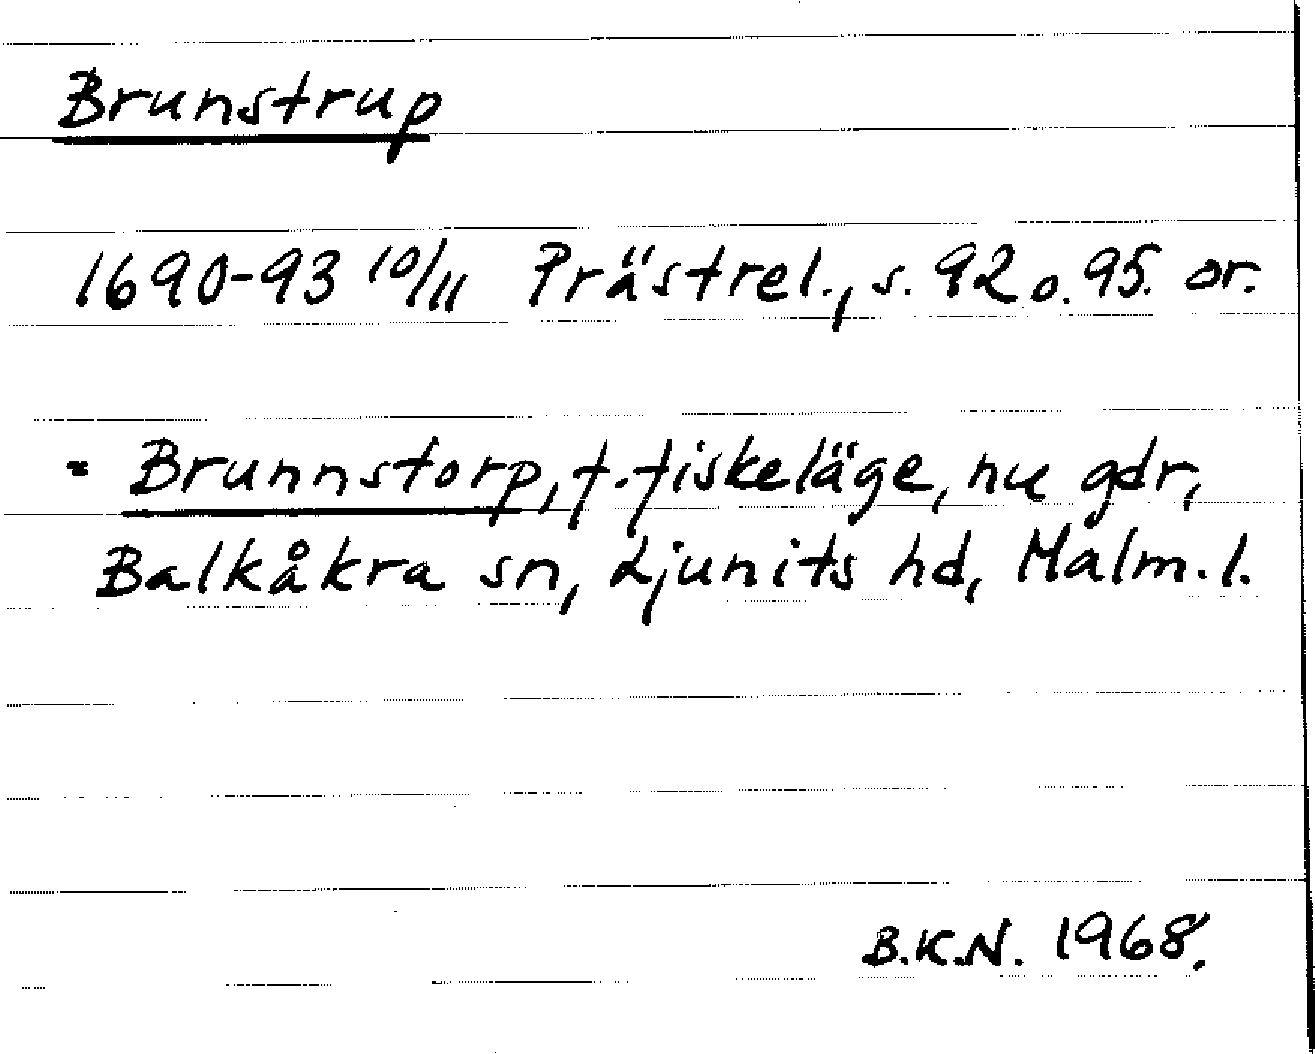 Brunstrup
1690-93 10/11 Prästrel., s. 92 o. 95. or.
= Brunnstorp, f. fiskeläge, nu gdr,
Balkåkra sn, Ljunits hd, Malm. l.
B.K.N. 1968.